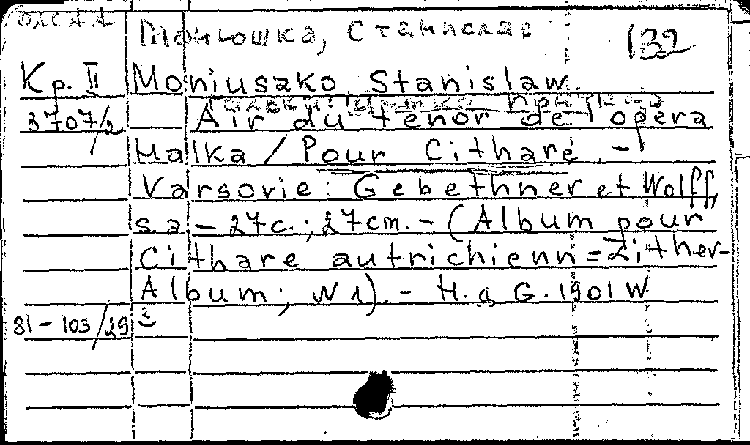 Монюшко, Станислав 132
Кр. II Moniuszko Stanislaw.
3707/2 Air du tenor de l'opera
Halka / Pour Cithare. -
Varsovie: Gebethner et Wolff,
s.a. - 27c.; 27cm. - (Album pour
Cithare autrichienn = Zither-
Album; N 1). - H. д. G. 1901 W
81-103/29